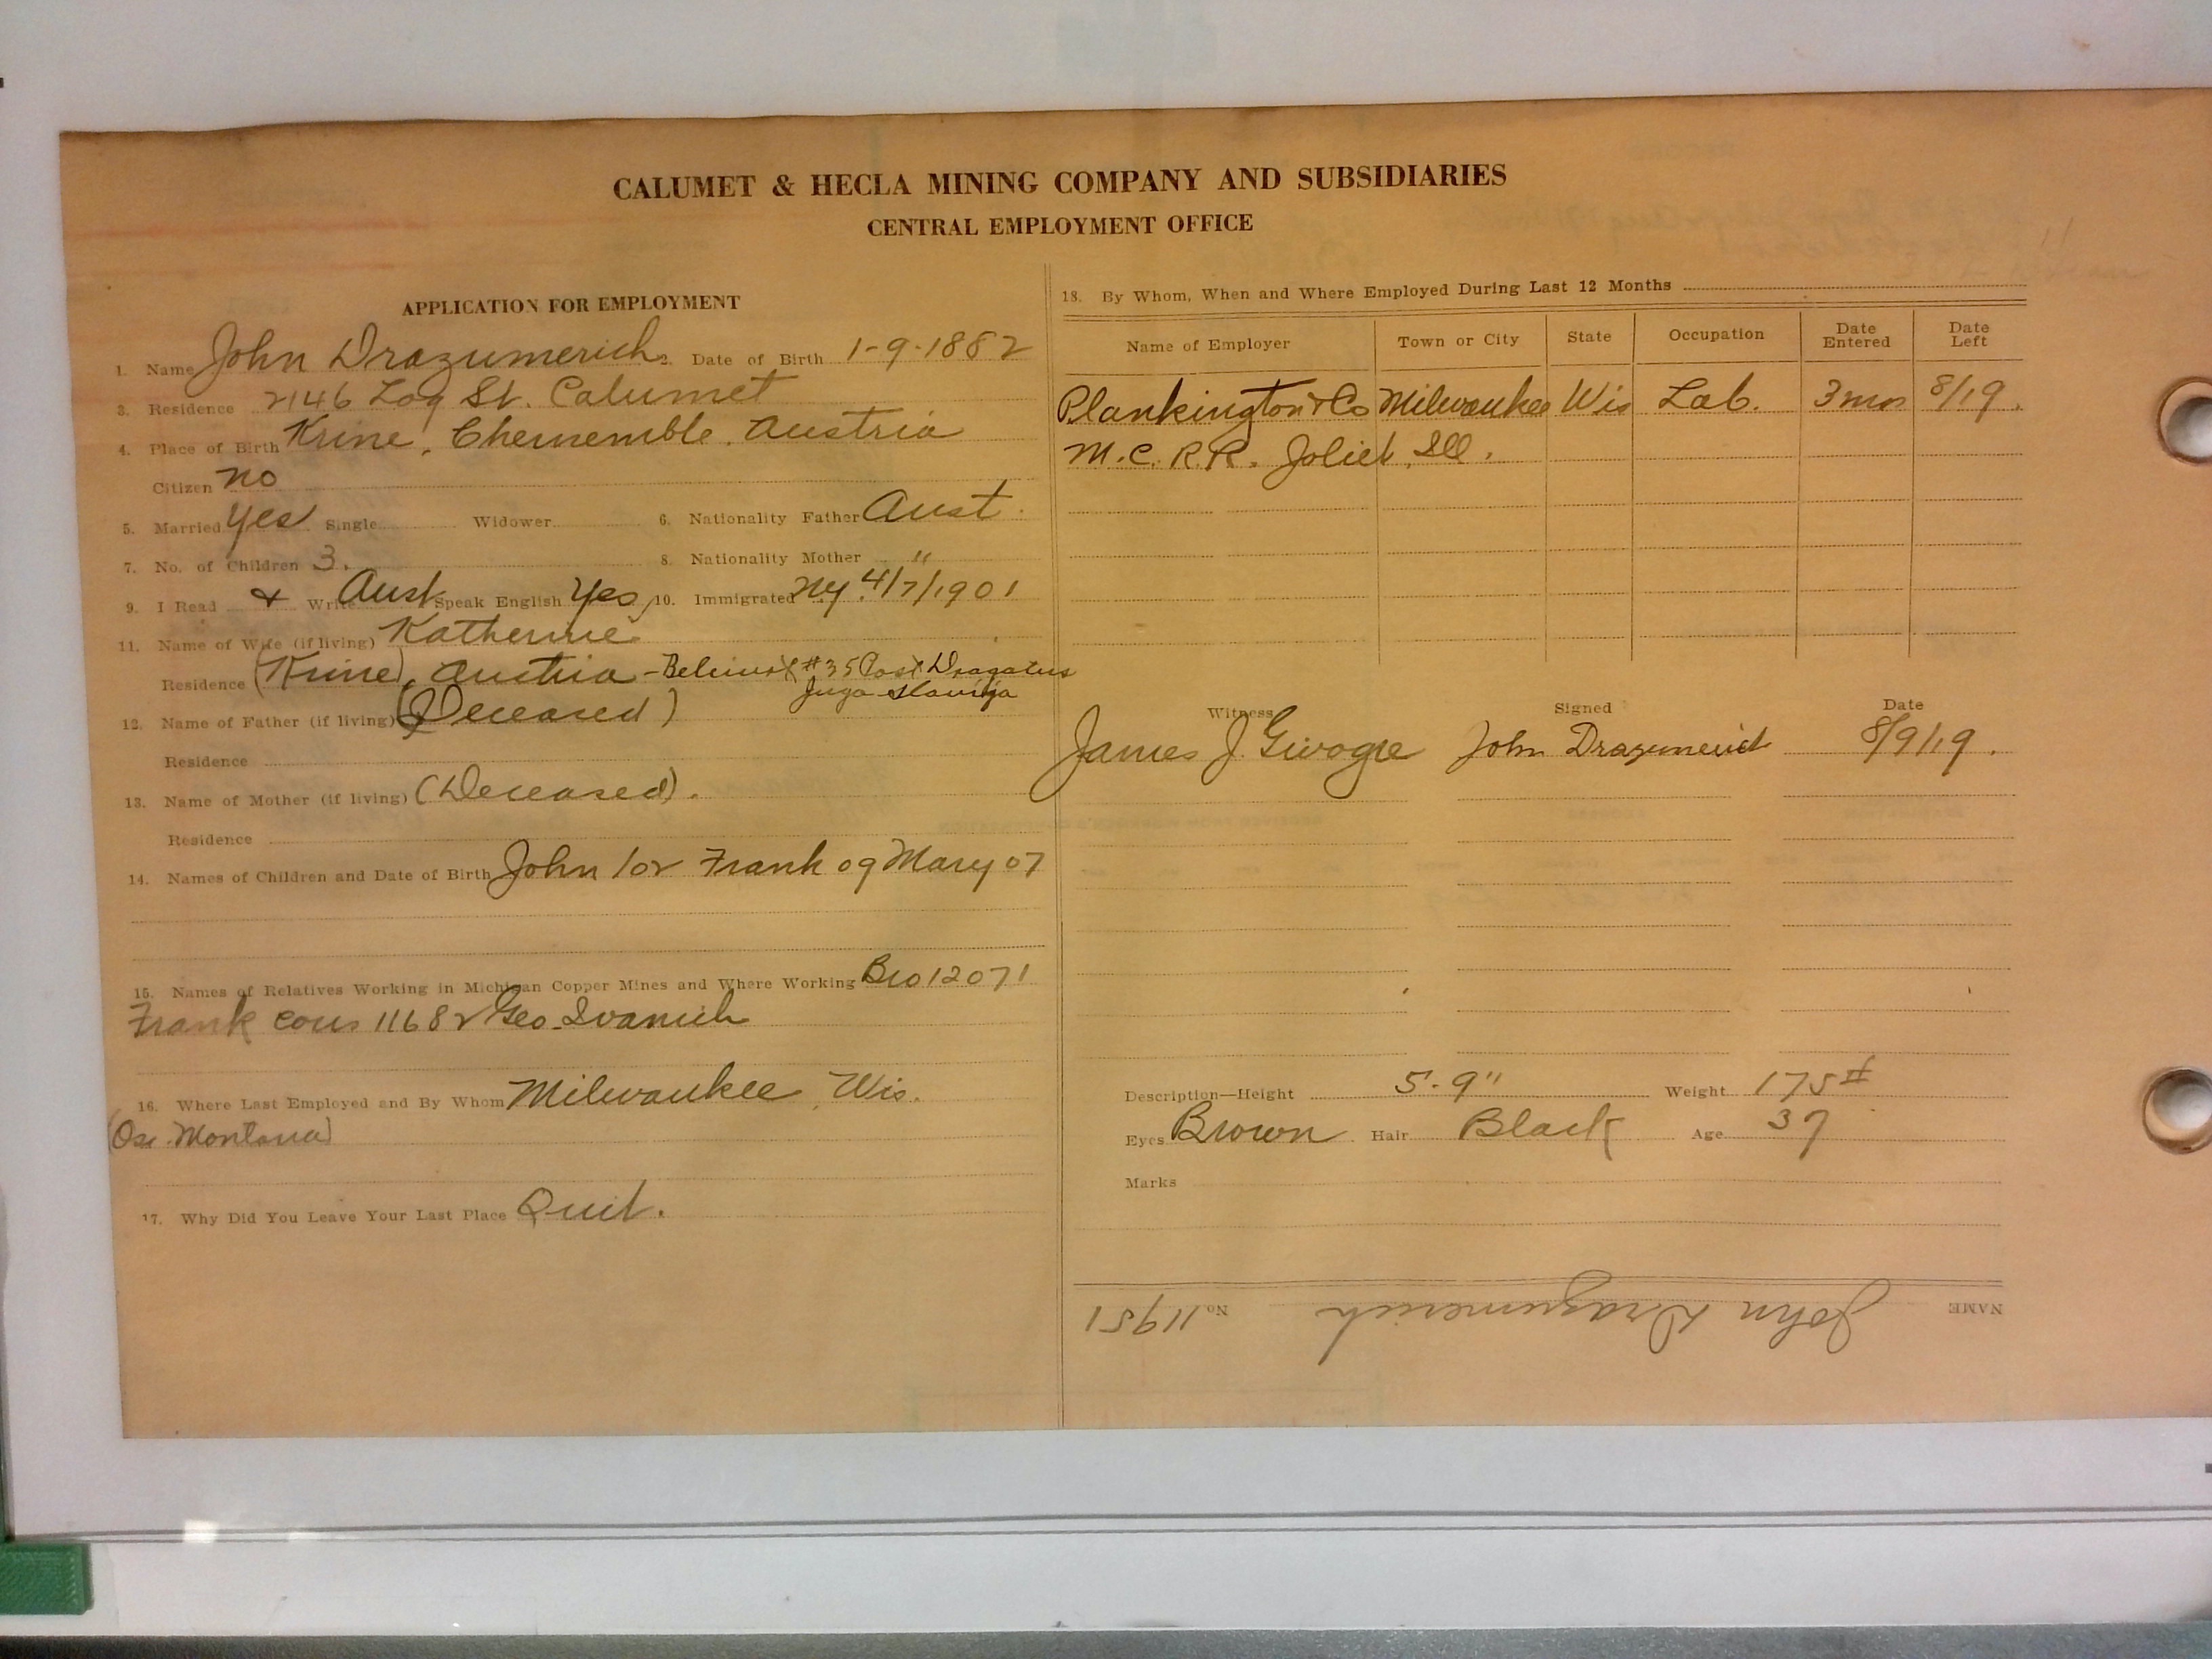 CALUMET & HECLA MINING COMPANY AND SUBSIDIARIES
CENTRAL EMPLOYMENT OFFICE
APPLICATION FOR EMPLOYMENT
1. Name John Drazumerich 2. Date of Birth 1-9-1882
3. Residence 2146 Log St. Calumet
4. Place of Birth Krine, Chernemble, Austria
Citizen no
5. Married Yes Single Widower 6. Nationality Father Aust.
7. No. of Children 3. 8. Nationality Mother "
9. I Read & Write Aust Speak English Yes 10. Immigrated NY. 4/7/1901
11. Name of Wife (if living) Katherine
Residence (Krine), Austria - #35 Post Dragatus
Juga Slavija
12. Name of Father (if living) (Deceased)
Residence
13. Name of Mother (if living) (Deceased).
Residence
14. Names of Children and Date of Birth John /02 Frank 09 Mary 07
15. Names of Relatives Working in Michigan Copper Mines and Where Working Bro 12071
Frank cous 11682 Geo. Ivanich
16. Where Last Employed and By Whom Milwaukee, Wis.
Montana)
17. Why Did You Leave Your Last Place Quit.
18. By Whom, When and Where Employed During Last 12 Months
Name of Employer Town or City State Occupation Date Entered Date Left
Plankington & Co Milwaukee Wis Lab. 3 mos 8/19.
M.C. R.R. Joliet, Ill.
Witness Signed Date
James J. John Drazumerich 8/9/19.
Description—Height 5-9" Weight 175#
Eyes Brown Hair Black Age 37
Marks
NAME John Drazumerich No. 11951